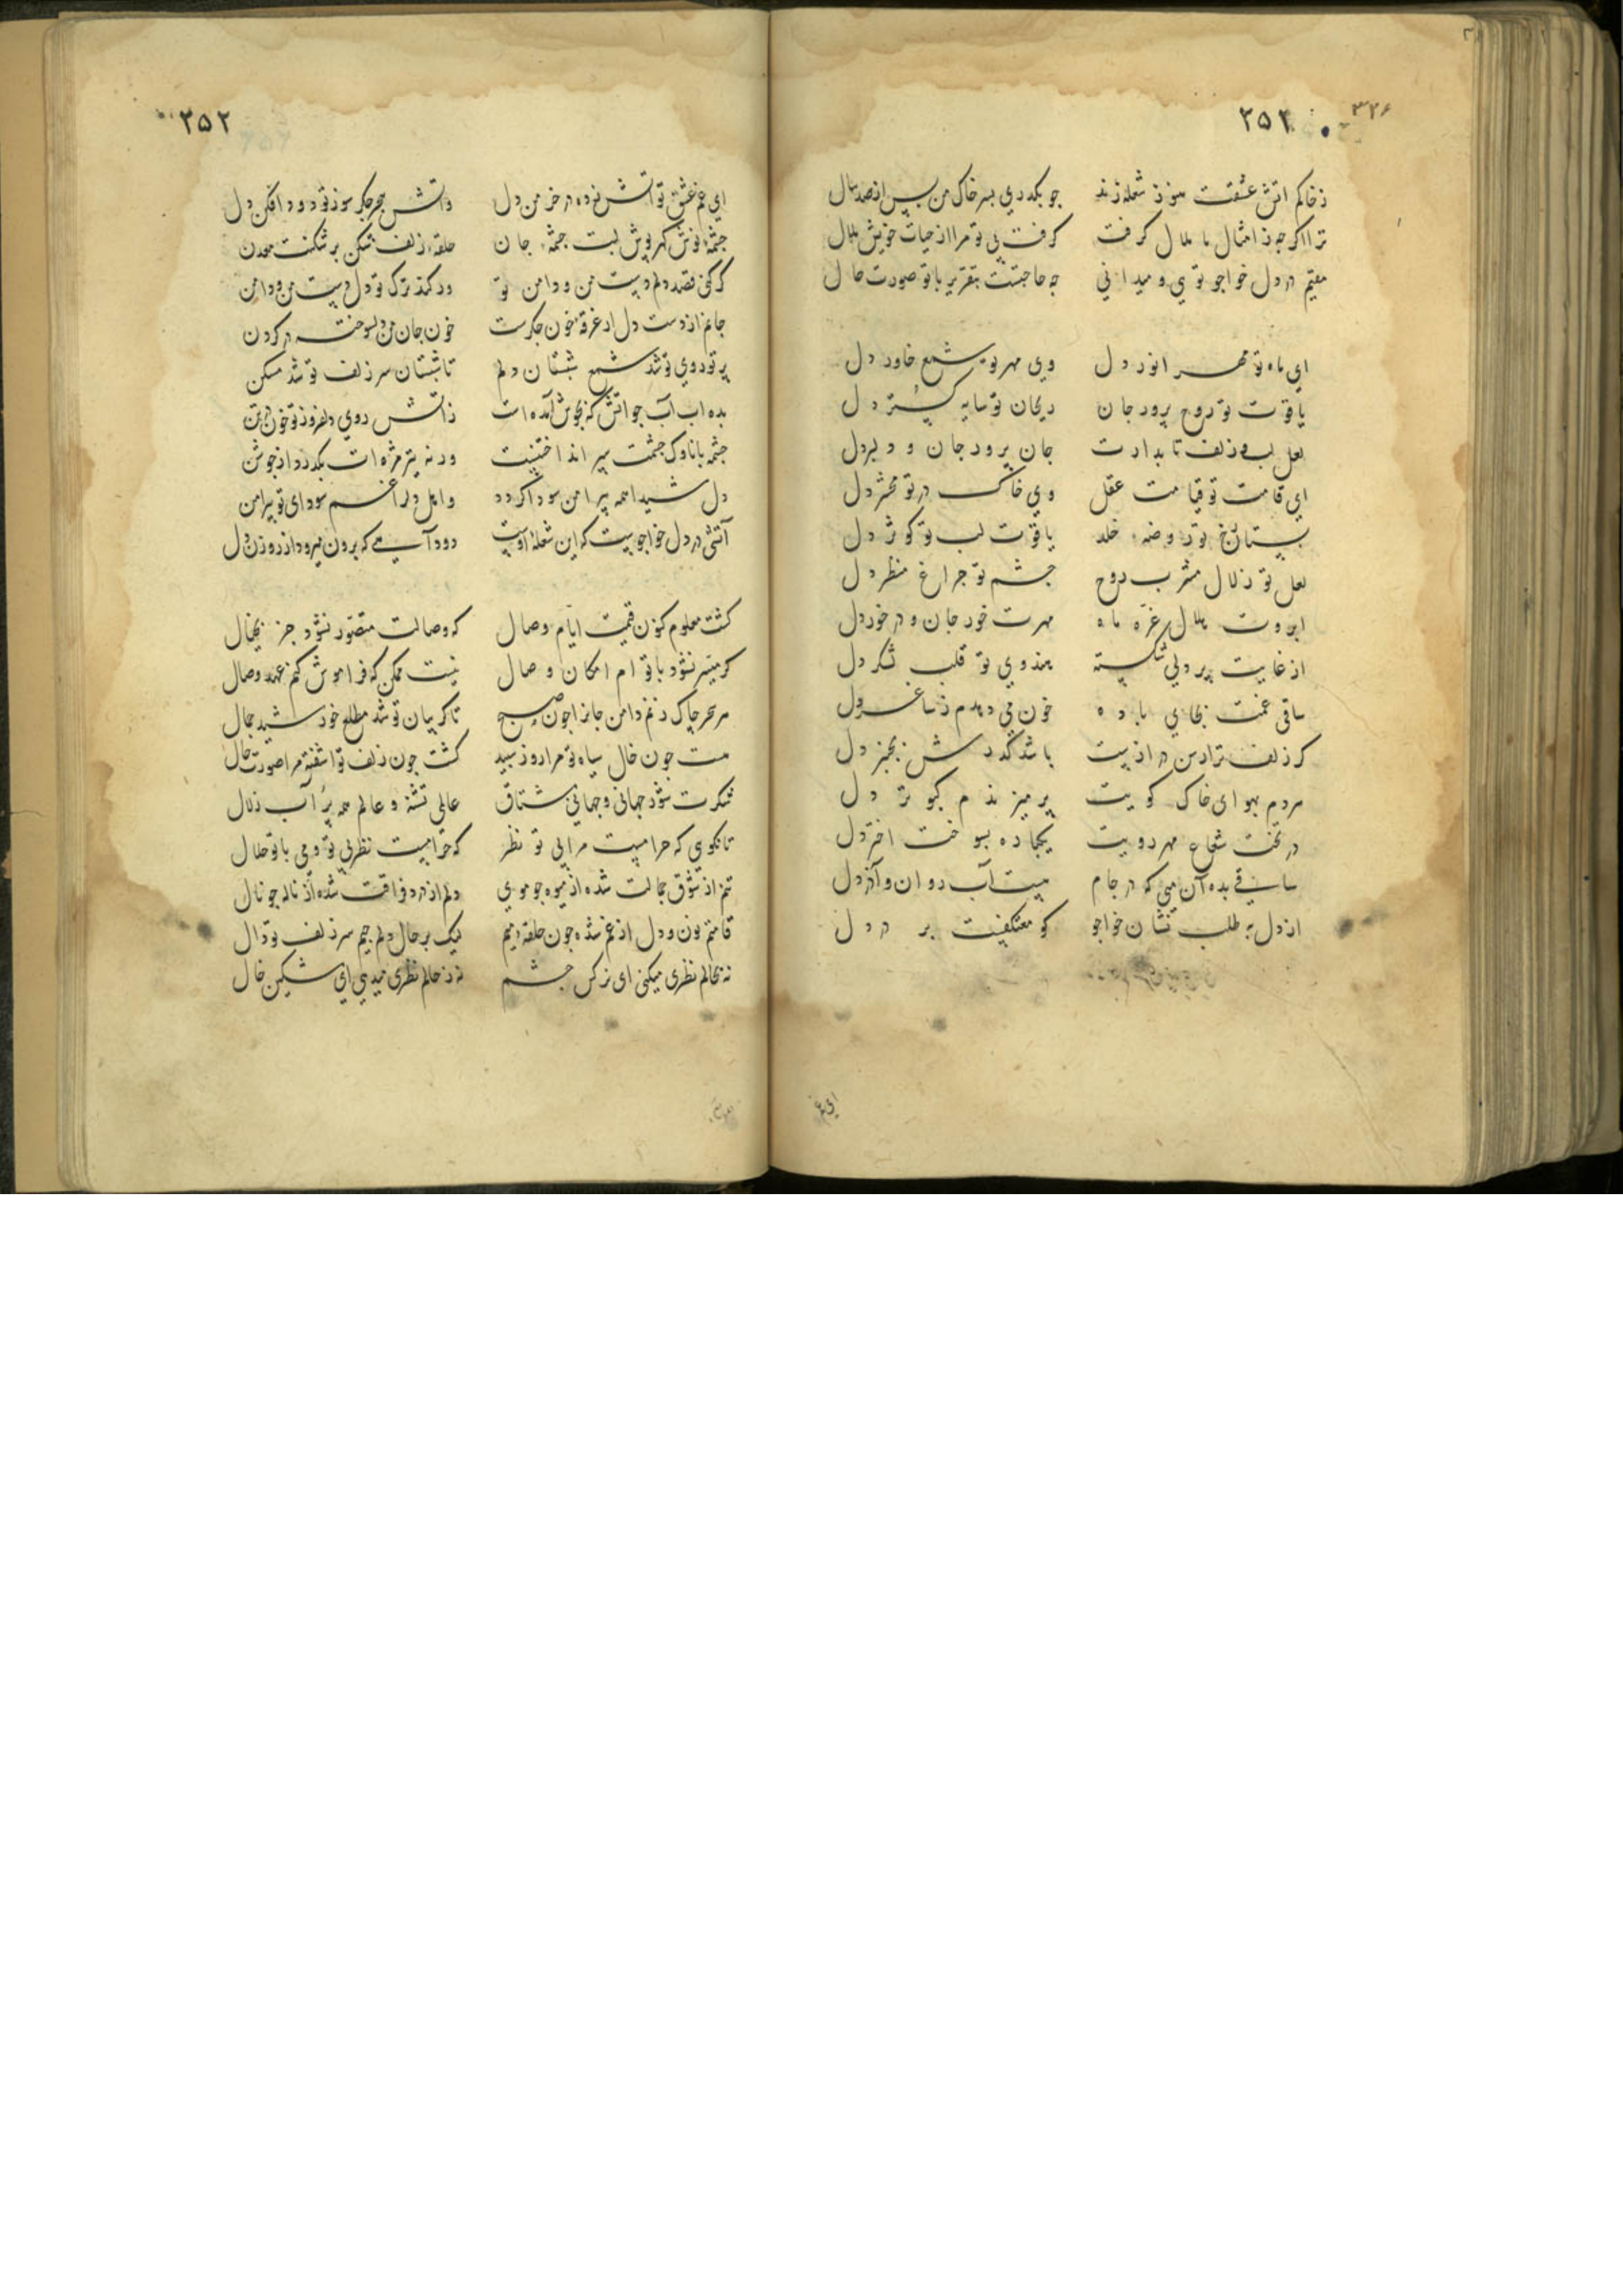 ۳۲۶
۲۵۲
زخاکم اتش عشقت هنوز شعله زند جو بکذری بسر خاک من بس از صد سال
ترا اکر جه ز امثال ما ملال کرفت کرفت بی تو مرا از حیات خویش ملال
مقیم در دل خواجو توی و میدانی جه حاجتست بتقریر با تو صورت حال
ای ماه تو مهر انور دل وی مهر تو شمع خاور دل
یاقوت تو روح برور جان ریحان تو سایه کستر دل
لعل لب و زلف تابدارت جان برور جان و دلبر دل
ای قامت تو قیامت عقل وی خاک در تو محشر دل
بستان رخ تو روضه خلد یاقوت لب تو کوثر دل
لعل تو زلال مشرب روح جشم تو جراغ منظر دل
ابروت هلال غره ماه مهرت خور جان و در خور دل
از غایت پر دلی شکسته هندوی تو قلب لشکر دل
ساقی غمت بجای باده خون می دهدم ز ساغر دل
کر زلف ترا رسن درازیست باشد کذرش بجنبر دل
مردم بهوای خاک کویت پر میزندم کبوتر دل
در تخت شعاع مهر رویت یکباره بسوخت اختر دل
ساقی بده آن می که در جام هست آب روان و آذر دل
از دل بطلب نشان خواجو کو معتکفیست بر در دل
ای غم
۲۵۲
ای غم عشق تو اتش زده در خرمن دل واتش هجر جکر سوز تو دود افکن دل
جشمه نوش کهر پوش لبت جشمه جان حلقه زلف شکن بر شکنت معدن
کر کنی قصد دلم دست من و دامن تو ور کند ترک تو دل دست من و دامن
جانم از دست دل ار غرقه خون جکرست خون جان من دلسوخته در کردن
پرتو روی تو شد شمع شبستان دلم تا شبستان سر زلف تو شد مسکن
بده اب آب جو اتش که بجوش آمده است ز اتش روی دلفروز تو خون در تن
جشمه با ناوک جشمت سپر انداختنیست ورنه تیر مژه ات بکذرد از جوشن
دل شیدا همه پیرامن سودا کردد
آتشی در دل خواجوست که این شعله اوست دود آهیست که برون میرود از روزن دل
کشت معلوم کنون قیمت ایام وصال که وصالت متصور نشود جز بخیال
کر میسر نشود با توام امکان وصال نیست ممکن که فراموش کنم عهد وصال
هر سحر چاک زنم دامن جانرا جون صبح تا کریبان تو شد مطلع خورشید جمال
هست جون خال سیاه تو مرا روز سپید کشت جون زلف تو اشفته مرا صورت حال
شکرت شور جهانی و جهانی مشتاق عالمی تشنه و عالم همه پر آب زلال
تا نکوی که حرامست مرا بی تو نظر که حرامست نظر بی تو و می با تو حلال
تنم از شوق جمالت شده از مویه جو موی دلم از درد فراقت شده از ناله جو نال
قامتم نون و دل از غم شده جون حلقه میم لیک بر حال دلم جیم سر زلف تو دال
نه بحالم نظری میکنی ای نرکس جشم نه ز حالم نظری میدهی ای مشکین خال